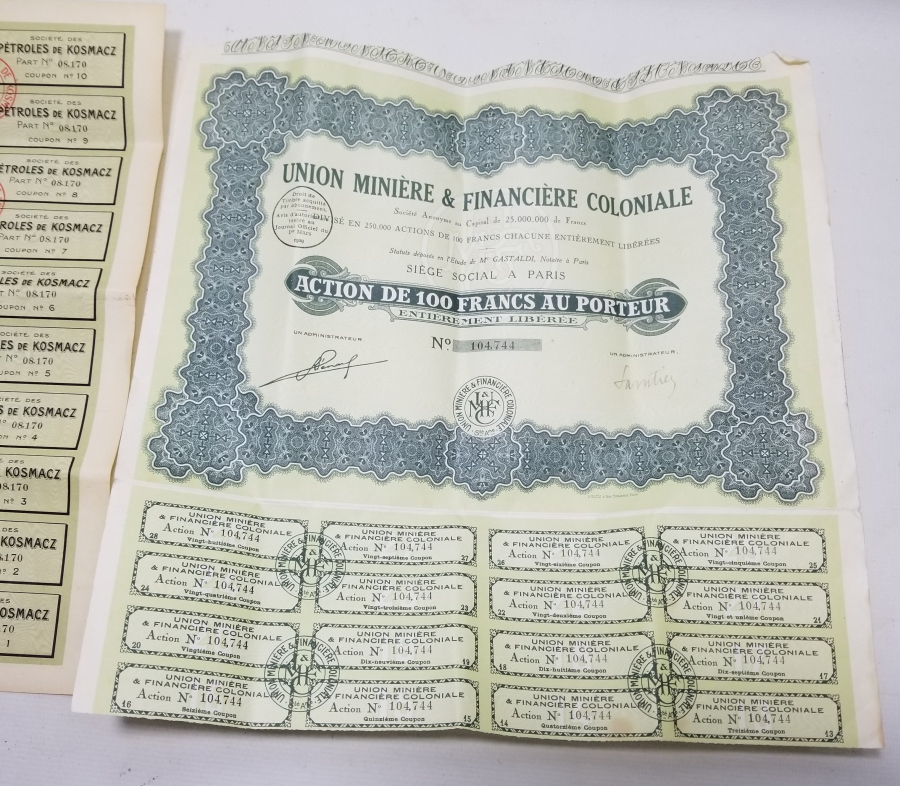 SOCIÉTÉ DES
PÉTROLES DE KOSMACZ
PART Nº 08.170
COUPON Nº 10
SOCIÉTÉ DES
PÉTROLES DE KOSMACZ
PART Nº 08.170
COUPON Nº 9
SOCIÉTÉ DES
PÉTROLES DE KOSMACZ
PART Nº 08.170
COUPON Nº 8
SOCIÉTÉ DES
ROLES DE KOSMACZ
PART Nº 08.170
COUPON Nº 7
SOCIÉTÉ DES
LES DE KOSMACZ
T Nº 08.170
OUPON Nº 6
CIÉTÉ DES
ES DE KOSMACZ
Nº 08.170
UPON Nº 5
ÉTÉ DES
S DE KOSMACZ
º 08.170
ON Nº 4
DES
KOSMACZ
08.170
Nº 3
DES
KOSMACZ
.170
Nº 2
ES
OSMACZ
70
1
UNION MINIÈRE & FINANCIÈRE COLONIALE
Société Anonyme au Capital de 25.000.000 de Francs
Droit de
Timbre acquitté
par abonnement
Avis d'autorisation
inséré au
Journal Officiel du
DIVISÉ EN 250.000 ACTIONS DE 100 FRANCS CHACUNE ENTIÈREMENT LIBÉRÉES
Statuts déposés en l'Étude de Mᵉ GASTALDI, Notaire à Paris
SIÈGE SOCIAL A PARIS
ACTION DE 100 FRANCS AU PORTEUR
ENTIÈREMENT LIBÉRÉE
Nº 104,744
UN ADMINISTRATEUR
UN ADMINISTRATEUR,
UNION MINIÈRE & FINANCIÈRE COLONIALE
UNION MINIÈRE
& FINANCIÈRE COLONIALE
Action Nº 104,744
28 Vingt-huitième Coupon
UNION MINIÈRE
& FINANCIÈRE COLONIALE
Action Nº 104,744
Vingt-septième Coupon 27
UNION MINIÈRE
& FINANCIÈRE COLONIALE
Action Nº 104,744
26 Vingt-sixième Coupon
UNION MINIÈRE
& FINANCIÈRE COLONIALE
Action Nº 104,744
Vingt-cinquième Coupon 25
UNION MINIÈRE
& FINANCIÈRE COLONIALE
Action Nº 104,744
24 Vingt-quatrième Coupon
UNION MINIÈRE
& FINANCIÈRE COLONIALE
Action Nº 104,744
Vingt-troisième Coupon 23
UNION MINIÈRE
& FINANCIÈRE COLONIALE
Action Nº 104,744
22 Vingt-deuxième Coupon
UNION MINIÈRE
& FINANCIÈRE COLONIALE
Action Nº 104,744
Vingt et unième Coupon 21
UNION MINIÈRE
& FINANCIÈRE COLONIALE
Action Nº 104,744
20 Vingtième Coupon
UNION MINIÈRE
& FINANCIÈRE COLONIALE
Action Nº 104,744
Dix-neuvième Coupon 19
UNION MINIÈRE
& FINANCIÈRE COLONIALE
Action Nº 104,744
18 Dix-huitième Coupon
UNION MINIÈRE
& FINANCIÈRE COLONIALE
Action Nº 104,744
Dix-septième Coupon 17
UNION MINIÈRE
& FINANCIÈRE COLONIALE
Action Nº 104,744
16 Seizième Coupon
UNION MINIÈRE
& FINANCIÈRE COLONIALE
Action Nº 104,744
Quinzième Coupon 15
UNION MINIÈRE
& FINANCIÈRE COLONIALE
Action Nº 104,744
14 Quatorzième Coupon
UNION MINIÈRE
& FINANCIÈRE COLONIALE
Action Nº 104,744
Treizième Coupon 13